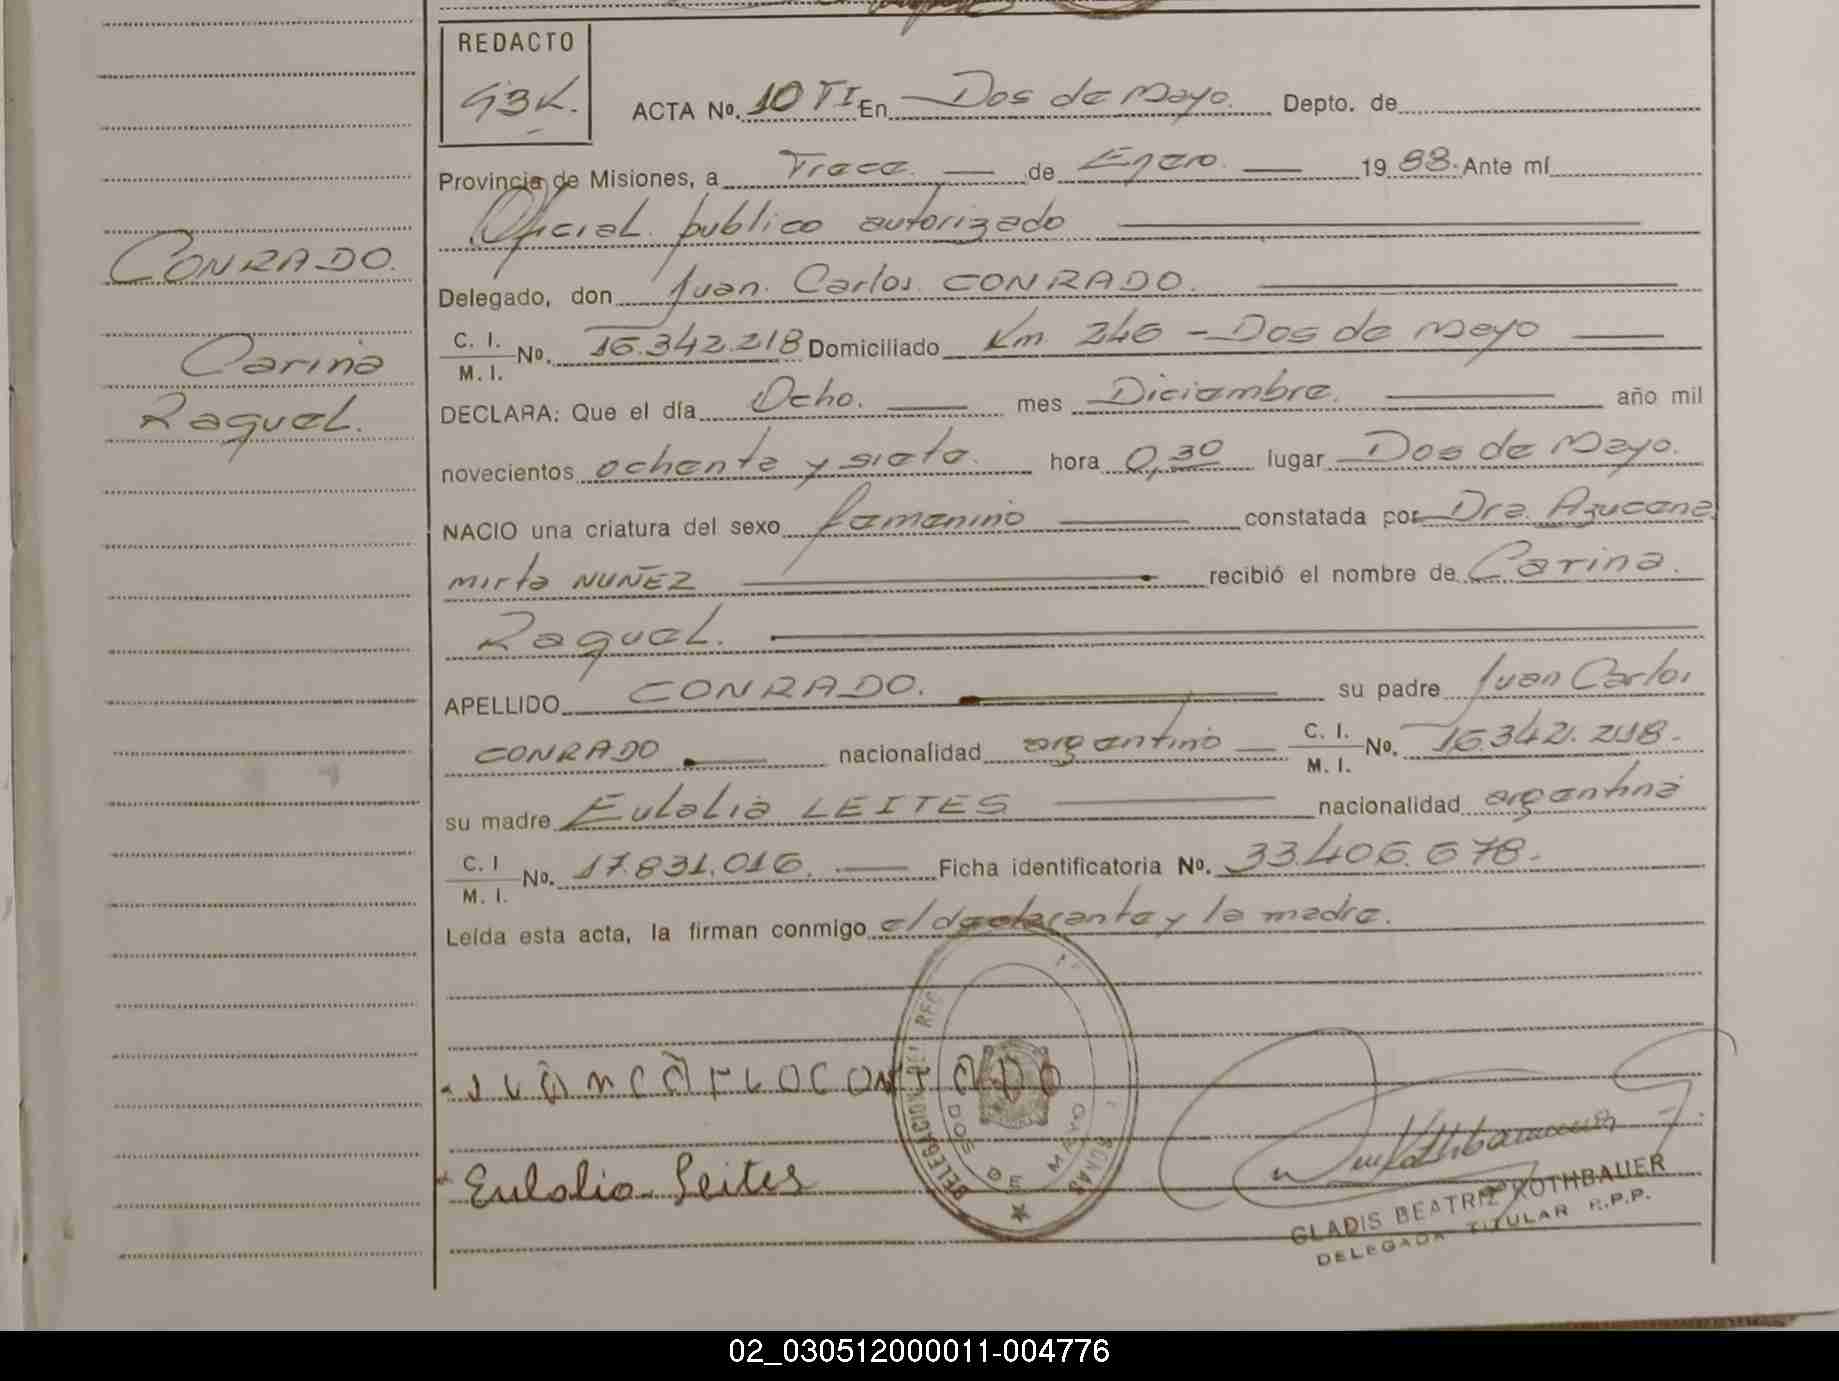 REDACTO
ACTA Nº. 10 TI En Dos de Mayo. Depto. de
Provincia de Misiones, a Trece. de Enero. 1988. Ante mí
Oficial publico autorizado
CONRADO.
Delegado, don Juan Carlos CONRADO.
C. I.
M. I.
Nº. 16.342.218 Domiciliado Km 246 - Dos de Mayo
Carina
Raquel.
DECLARA: Que el día Ocho. mes Diciembre. año mil
novecientos ochenta y siete. hora 0,30 lugar Dos de Mayo.
NACIO una criatura del sexo femenino constatada por Dra. Azucena
Mirta NUÑEZ recibió el nombre de Carina.
Raquel.
APELLIDO CONRADO. su padre Juan Carlos
CONRADO nacionalidad argentino C. I.
M. I.
Nº. 16.342.218.
su madre Eulalia LEITES nacionalidad argentina
C. I
M. I.
Nº. 17.831.016. Ficha identificatoria Nº. 33.406.678.
Leída esta acta, la firman conmigo el declarante y la madre.
JUANCARLOCONRADO
Eulalia Leites
DELEGACION
DOS DE MAYO
GLADIS BEATRIZ ROTHBAUER
DELEGADA TITULAR R.P.P.
02_030512000011-004776